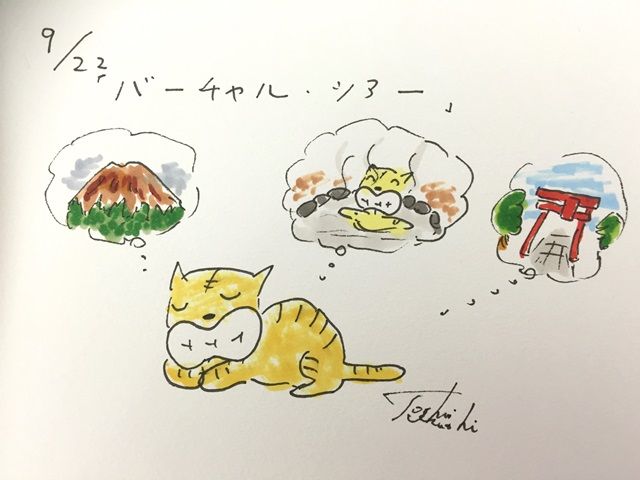 9/22
「バーチャル・ツアー」